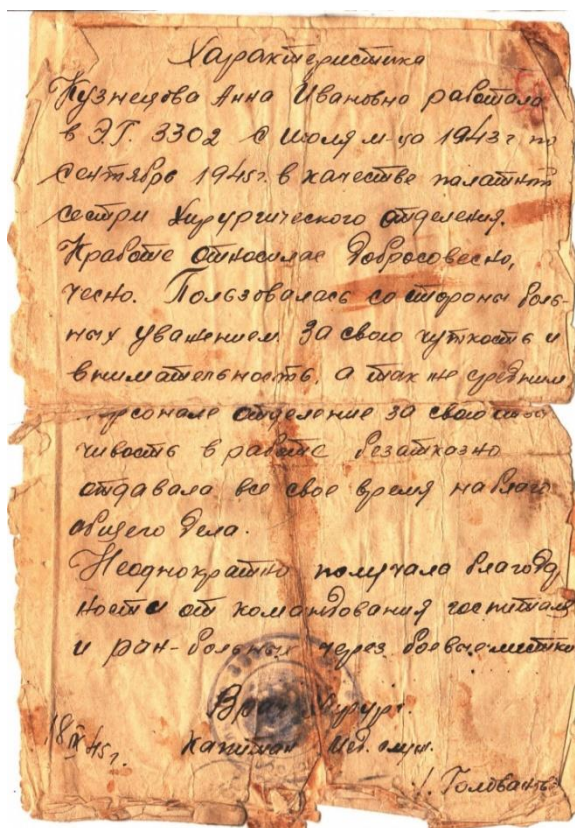 Характеристика
Кузнецова Анна Ивановна работала
в Э.Г. 3302 с июля м-ца 1943 г. по
сентябрь 1945 г. в качестве палатной
сестры хирургического отделения.
К работе относилас добросовесно,
чесно. Пользовалась со стороны боль-
ных уважением за свою чуткость и
внимательность, а так же средним
персонале отделение за свою
чивость в работе безатказно
отдавала все свое время на благо
общего дела.
Неоднократно получала благода
ности от командования госпиталя
и ран-больных через боевые листки
Врач Хирург.
18 IX 45 г. Капитан Мед. служ.
Голован